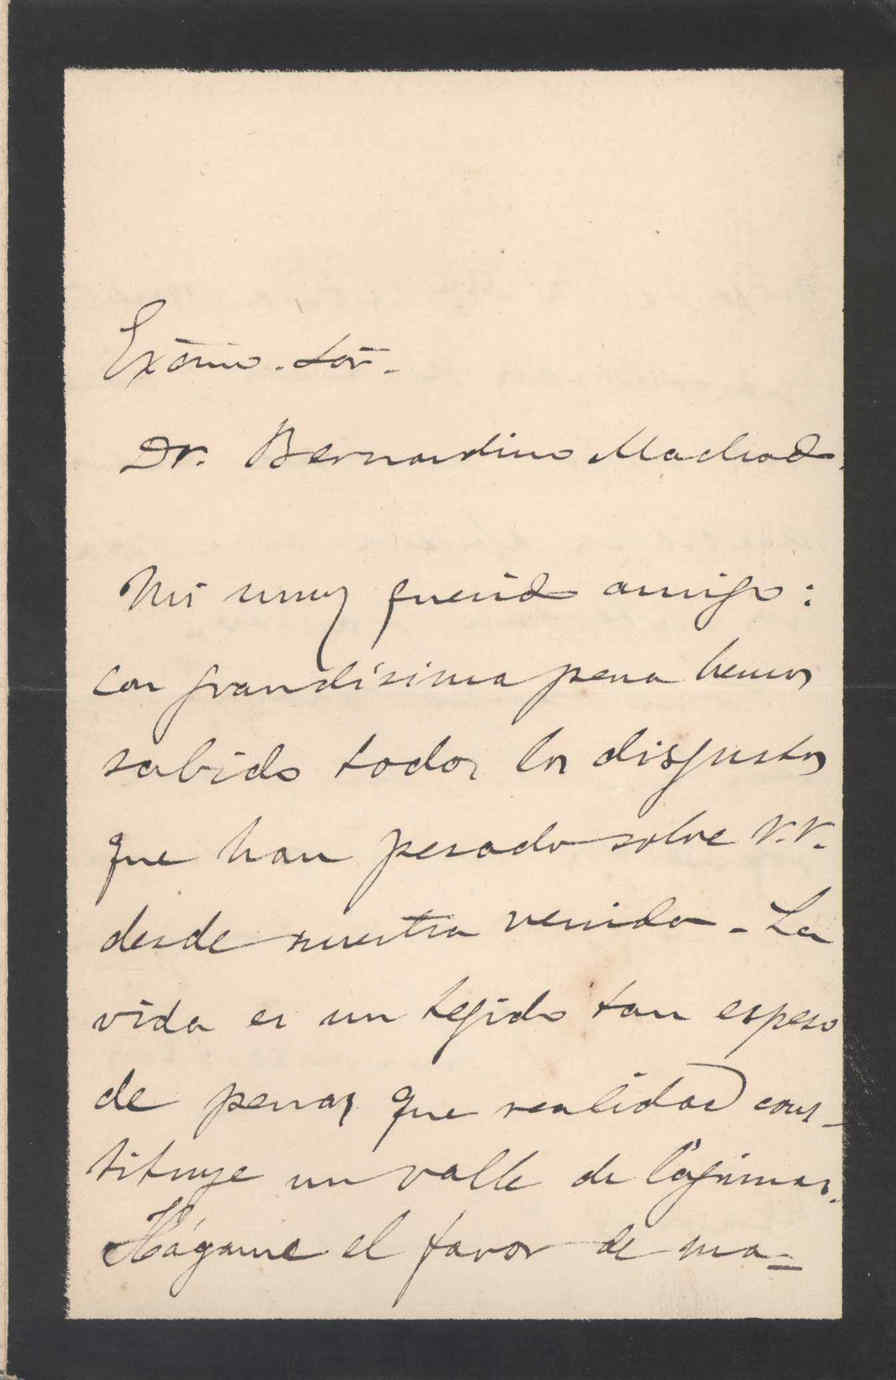 Exōmo. Sōr.
Dr. Bernardino Machado.
Mi muy querido amigo:
con grandísima pena hemos
sabido todos los disgustos
que han pesado sobre V.V.
desde nuestra venida. La
vida es un tejido tan espeso
de penas que realidad cons-
tituye un valle de lágrimas.
Hágame el favor de ma=